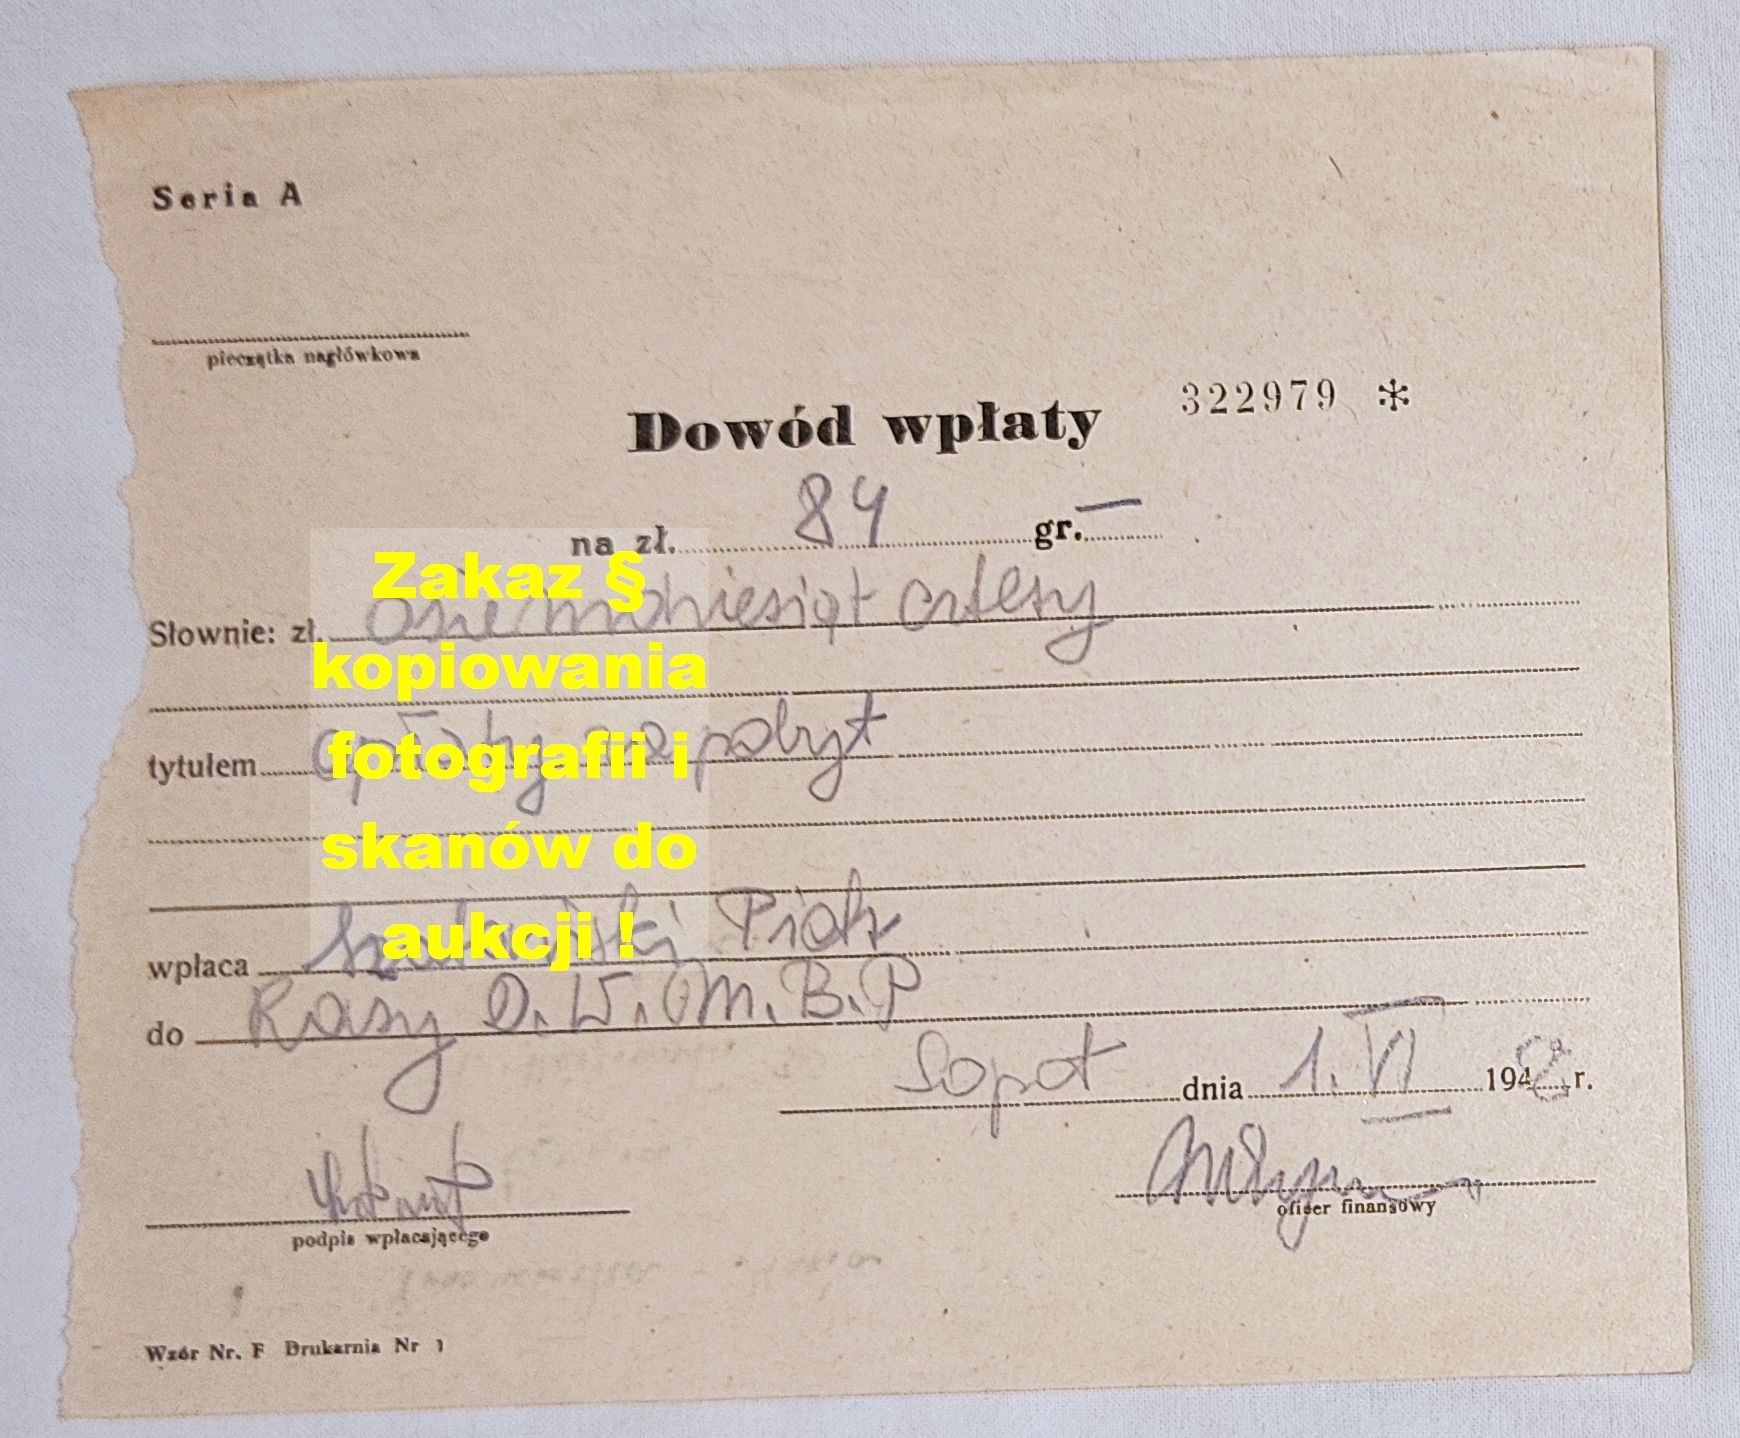 Seria A
pieczątka nagłówkowa
Dowód wpłaty 322979 *
na zł. 84 gr. —
Słownie: zł. Osiemdziesiąt cztery
tytułem opłaty za pobyt
wpłaca Piotr
do Kasy D.W.M.B.P
Sopot dnia 1.VI 1948 r.
oficer finansowy
podpis wpłacającego
Wzór Nr. F Drukarnia Nr 1
Zakaz §
kopiowania
fotografii i
skanów do
aukcji !